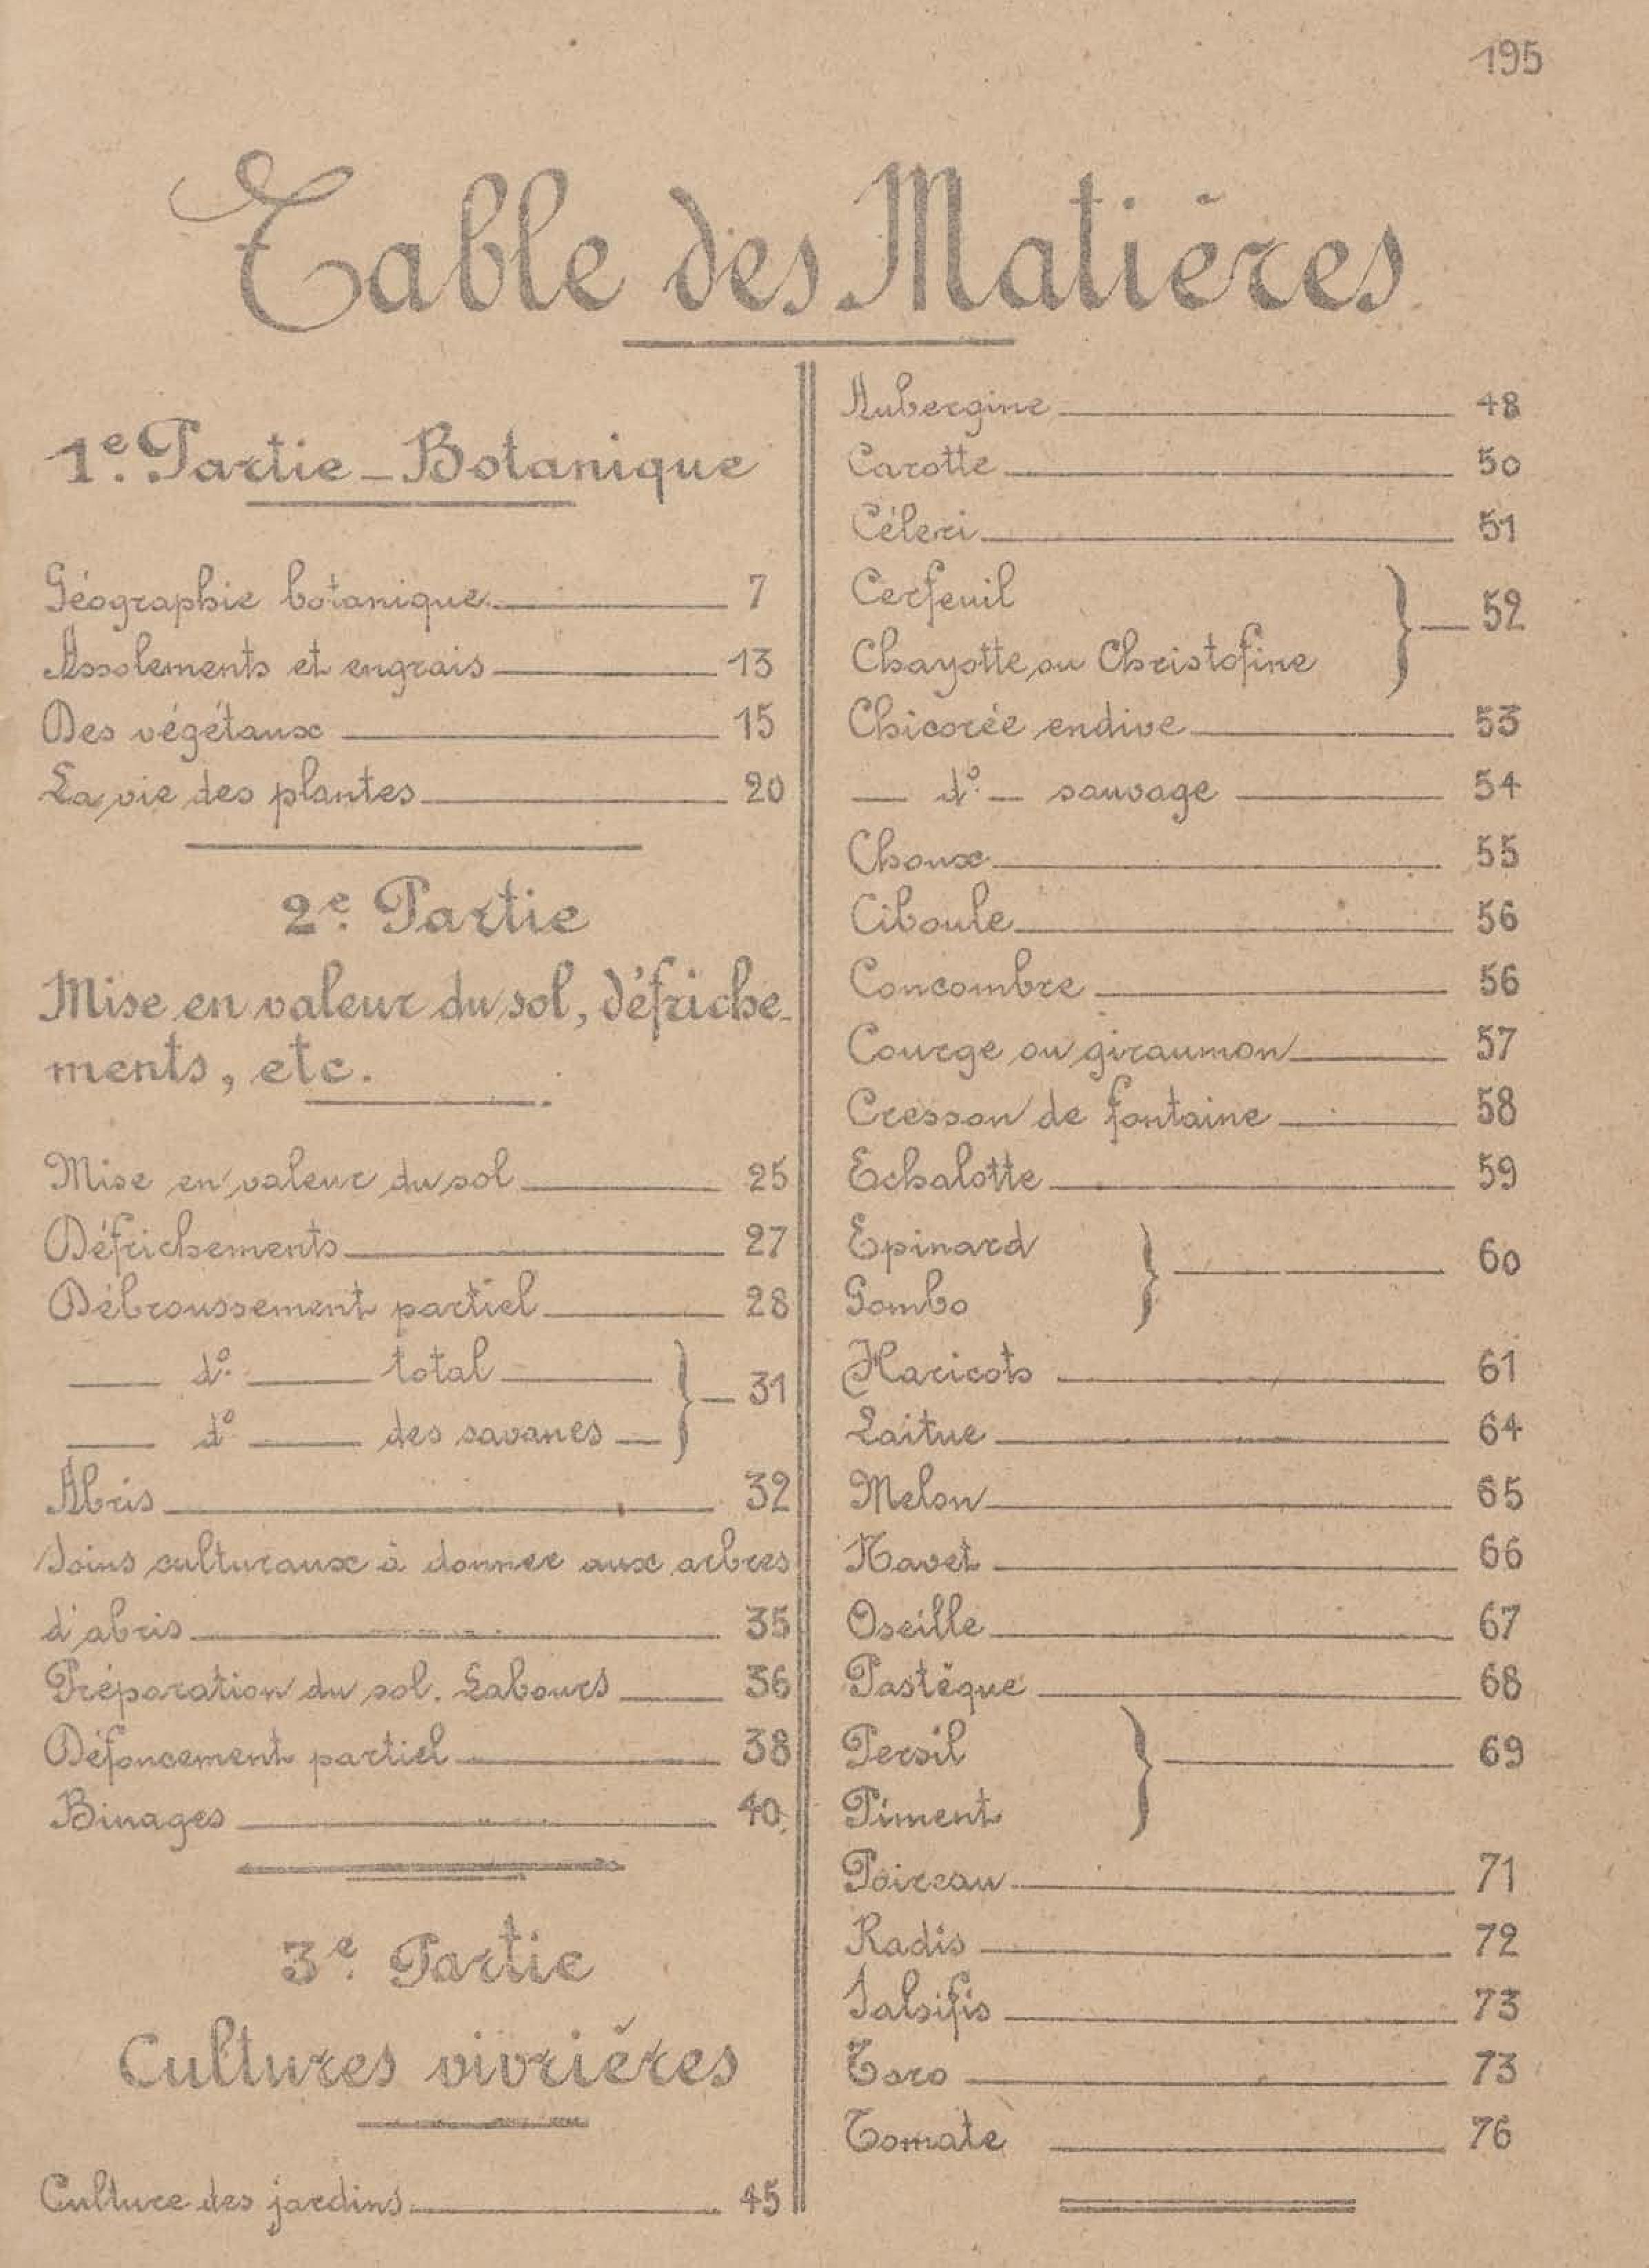 195
Table des Matières
1e. Partie - Botanique
Géographie botanique 7
Assolements et engrais 13
Des végétaux 15
La vie des plantes 20
2e. Partie
Mise en valeur du sol, défriche-
ments, etc.
Mise en valeur du sol 25
Défrichements 27
Débroussement partiel 28
— do. — total
— do — des savanes } — 31
Abris 32
Soins culturaux à donner aux arbres
d'abris 35
Préparation du sol. Labours 36
Défoncement partiel 38
Binages 40
3e. Partie
Cultures vivrières
Culture des jardins 45
Aubergine 48
Carotte 50
Céleri 51
Cerfeuil
Chayotte ou Christofine } — 52
Chicorée endive 53
— do. — sauvage 54
Choux 55
Ciboule 56
Concombre 56
Courge ou giraumon 57
Cresson de fontaine 58
Echalotte 59
Epinard
Gombo } 60
Haricots 61
Laitue 64
Melon 65
Navet 66
Oseille 67
Pastèque 68
Persil
Piment } 69
Poireau 71
Radis 72
Salsifis 73
Taro 73
Tomate 76